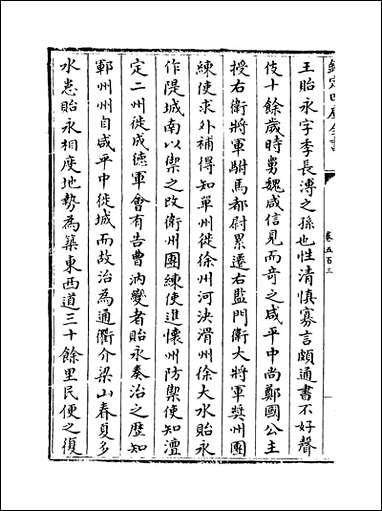 欽定四庫全書
卷五百三
王貽永字季長溥之孫也性清慎寡言頗通書不好聲
伎十餘歲時舅魏咸信見而奇之咸平中尚鄭國公主
授右衛將軍駙馬都尉累遷右監門衛大將軍奬州團
練使求外補得知單州徙徐州河決滑州徐大水貽永
作隄城南以禦之改衛州團練使進懷州防禦使知澶
定二州徙成徳軍會有告曹汭變者貽永奏治之歴知
鄆州州自咸平中徙城而故治為通衢介梁山春夏多
水患貽永相度地勢為築東西道三十餘里民便之復